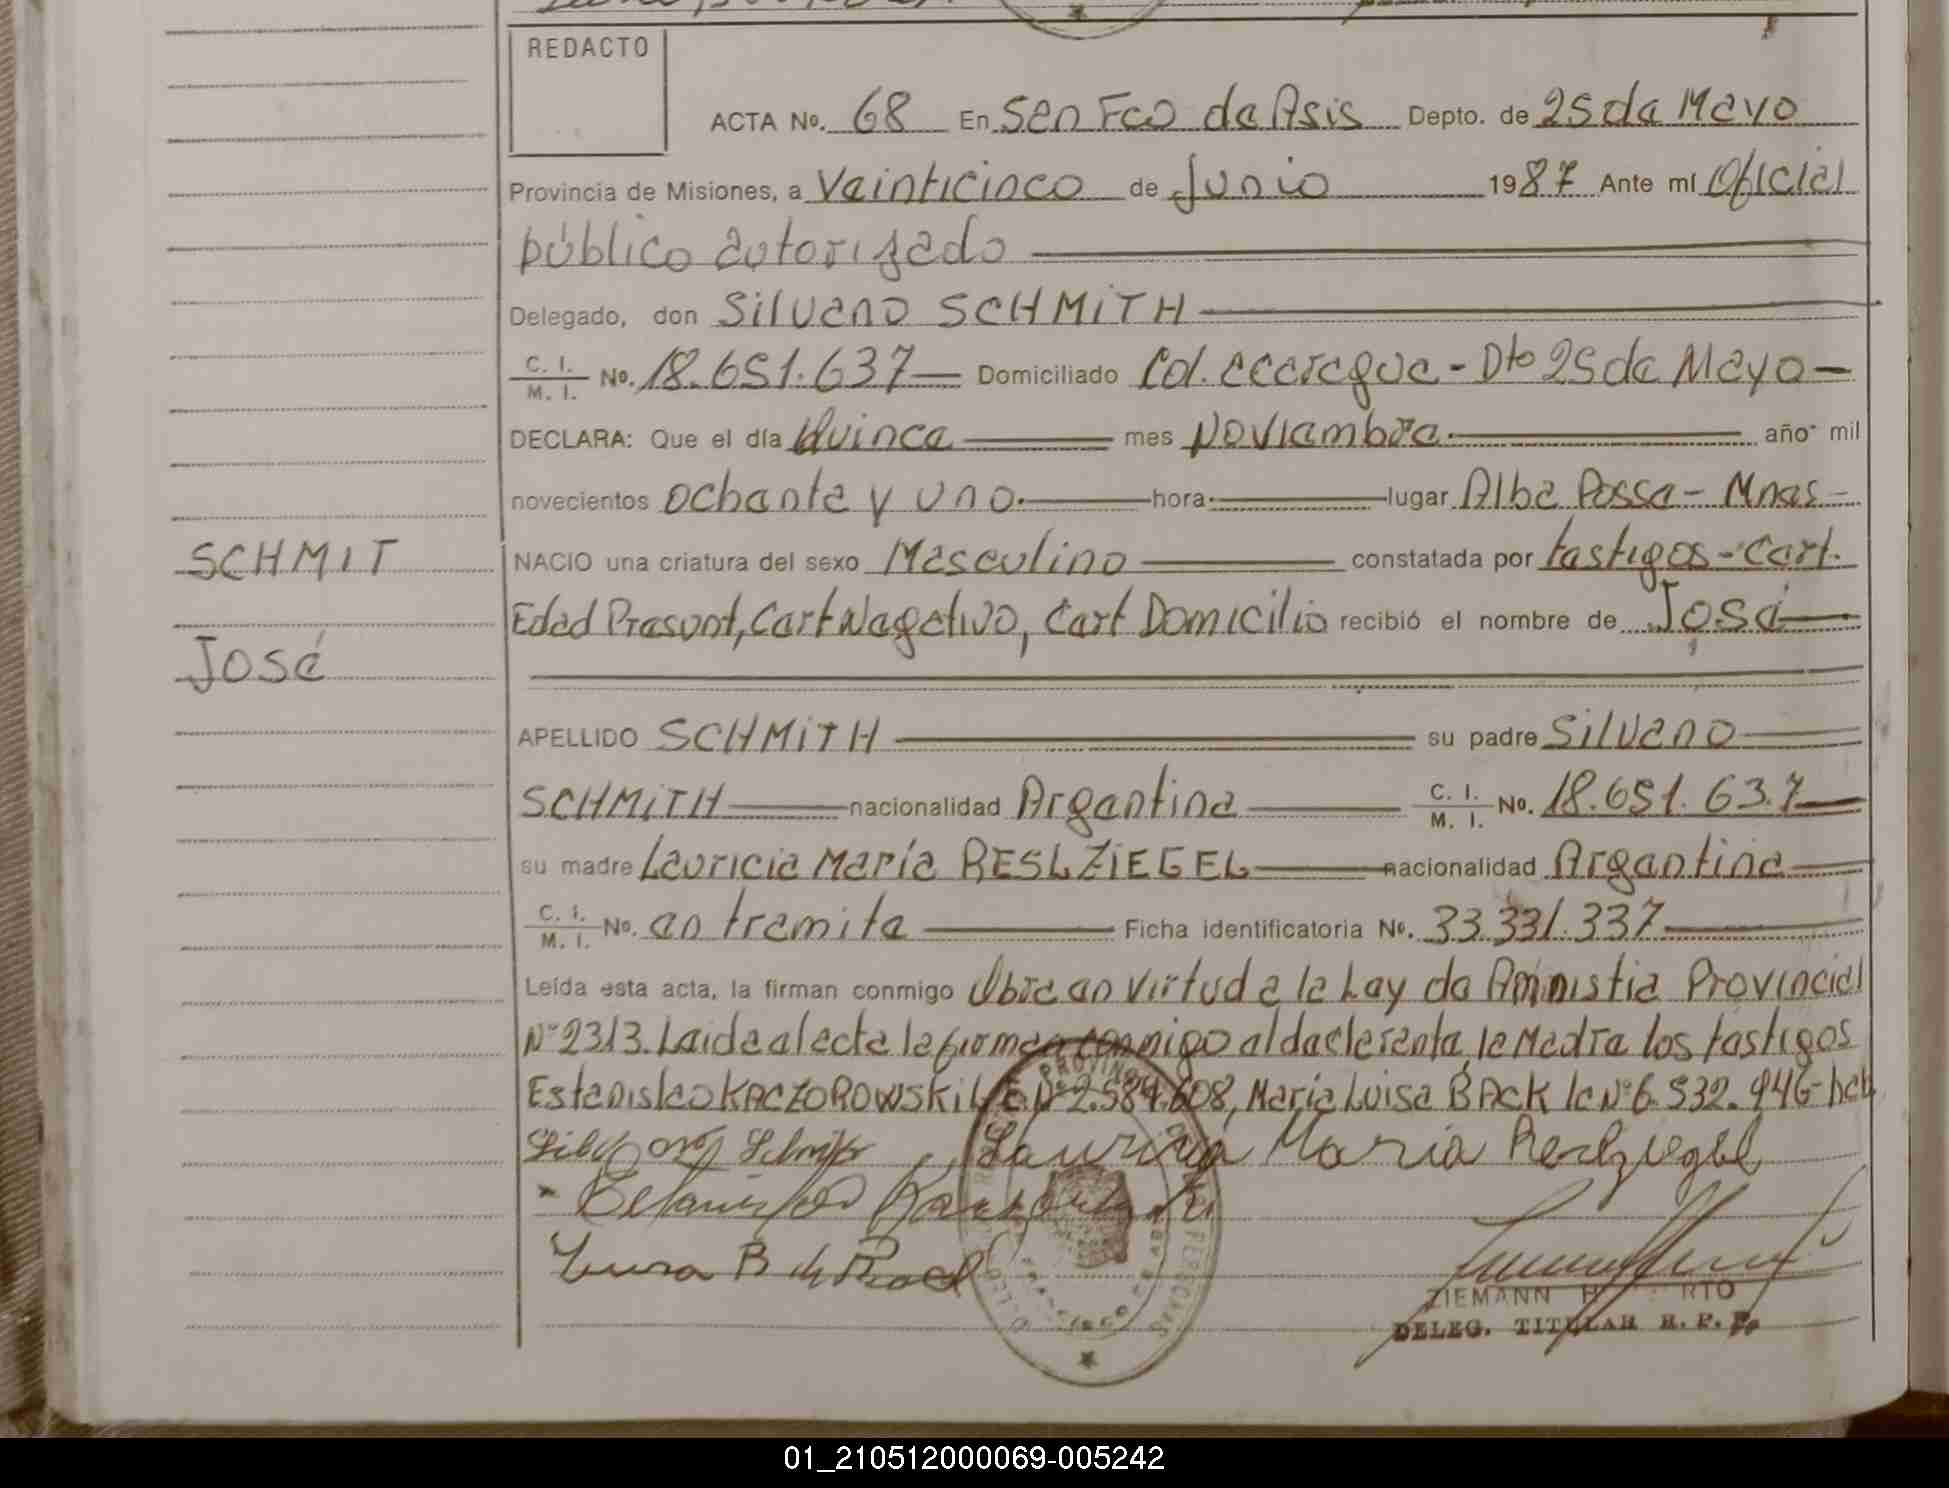 REDACTO
ACTA No. 68 En San Fco de Asis Depto. de 25 de Mayo
Provincia de Misiones, a Veinticinco de Junio 1987 Ante mí Oficial
público autorizado
Delegado, don Silvano SCHMiTH
C. I. / M. I. No. 18.651.637 Domiciliado Col. Acaragua - Dto 25 de Mayo -
DECLARA: Que el día Quince mes Noviembre año mil
novecientos ochenta y uno. hora lugar Alba Possa - Mnes -
SCHMIT
NACIO una criatura del sexo Masculino constatada por testigos - Cert.
Edad Presunt, Cert Negativo, Cert Domicilio recibió el nombre de José
José
APELLIDO SCHMiTH su padre Silvano
SCHMiTH nacionalidad Argentina C. I. / M. I. No. 18.651.637
su madre Lauricia María RESLZiEGEL nacionalidad Argentina
C. I. / M. I. No. en tramite Ficha identificatoria No. 33.331.337
Leída esta acta, la firman conmigo Obra en virtud a la Ley de Aminnistia Provincial
Nº 2313. Leida el acta la firman conmigo el declarante, la Madre los testigos
Estanislao KACZOROWSKi L.E.Nº 2.584.608, María Luisa BACK lc Nº 6.532.946-
Lauricia Maria Reslziegel
Estanislao
Luisa B de
ZIEMANN H RTO
DELEG. TITULAR R. P. P.
01_210512000069-005242